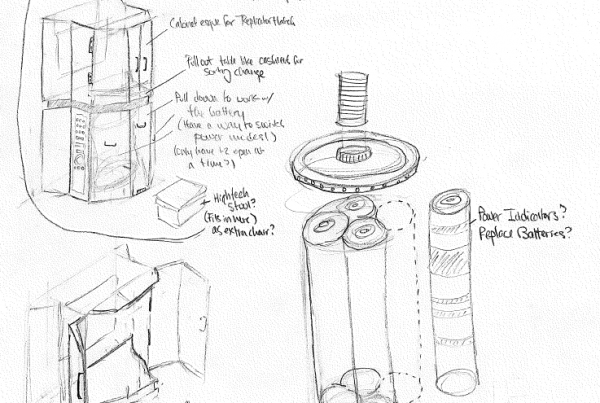 Cabinet esque for Replicator Hatch
Pull out table like cashiers for
sorting change
Pull down to work w/
the battery
(Have a way to switch
power modes!)
(only have 1-2 open at
a time?)
High tech
stool?
(Fits in here)
as extra chair?
Power Indicators?
Replace Batteries?